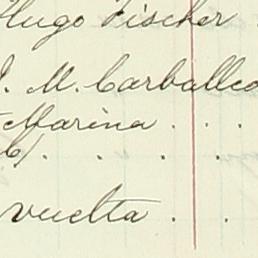 Hugo Fischer
J. M. Carballeo
Marina . . .
. . . .
vuelta . .